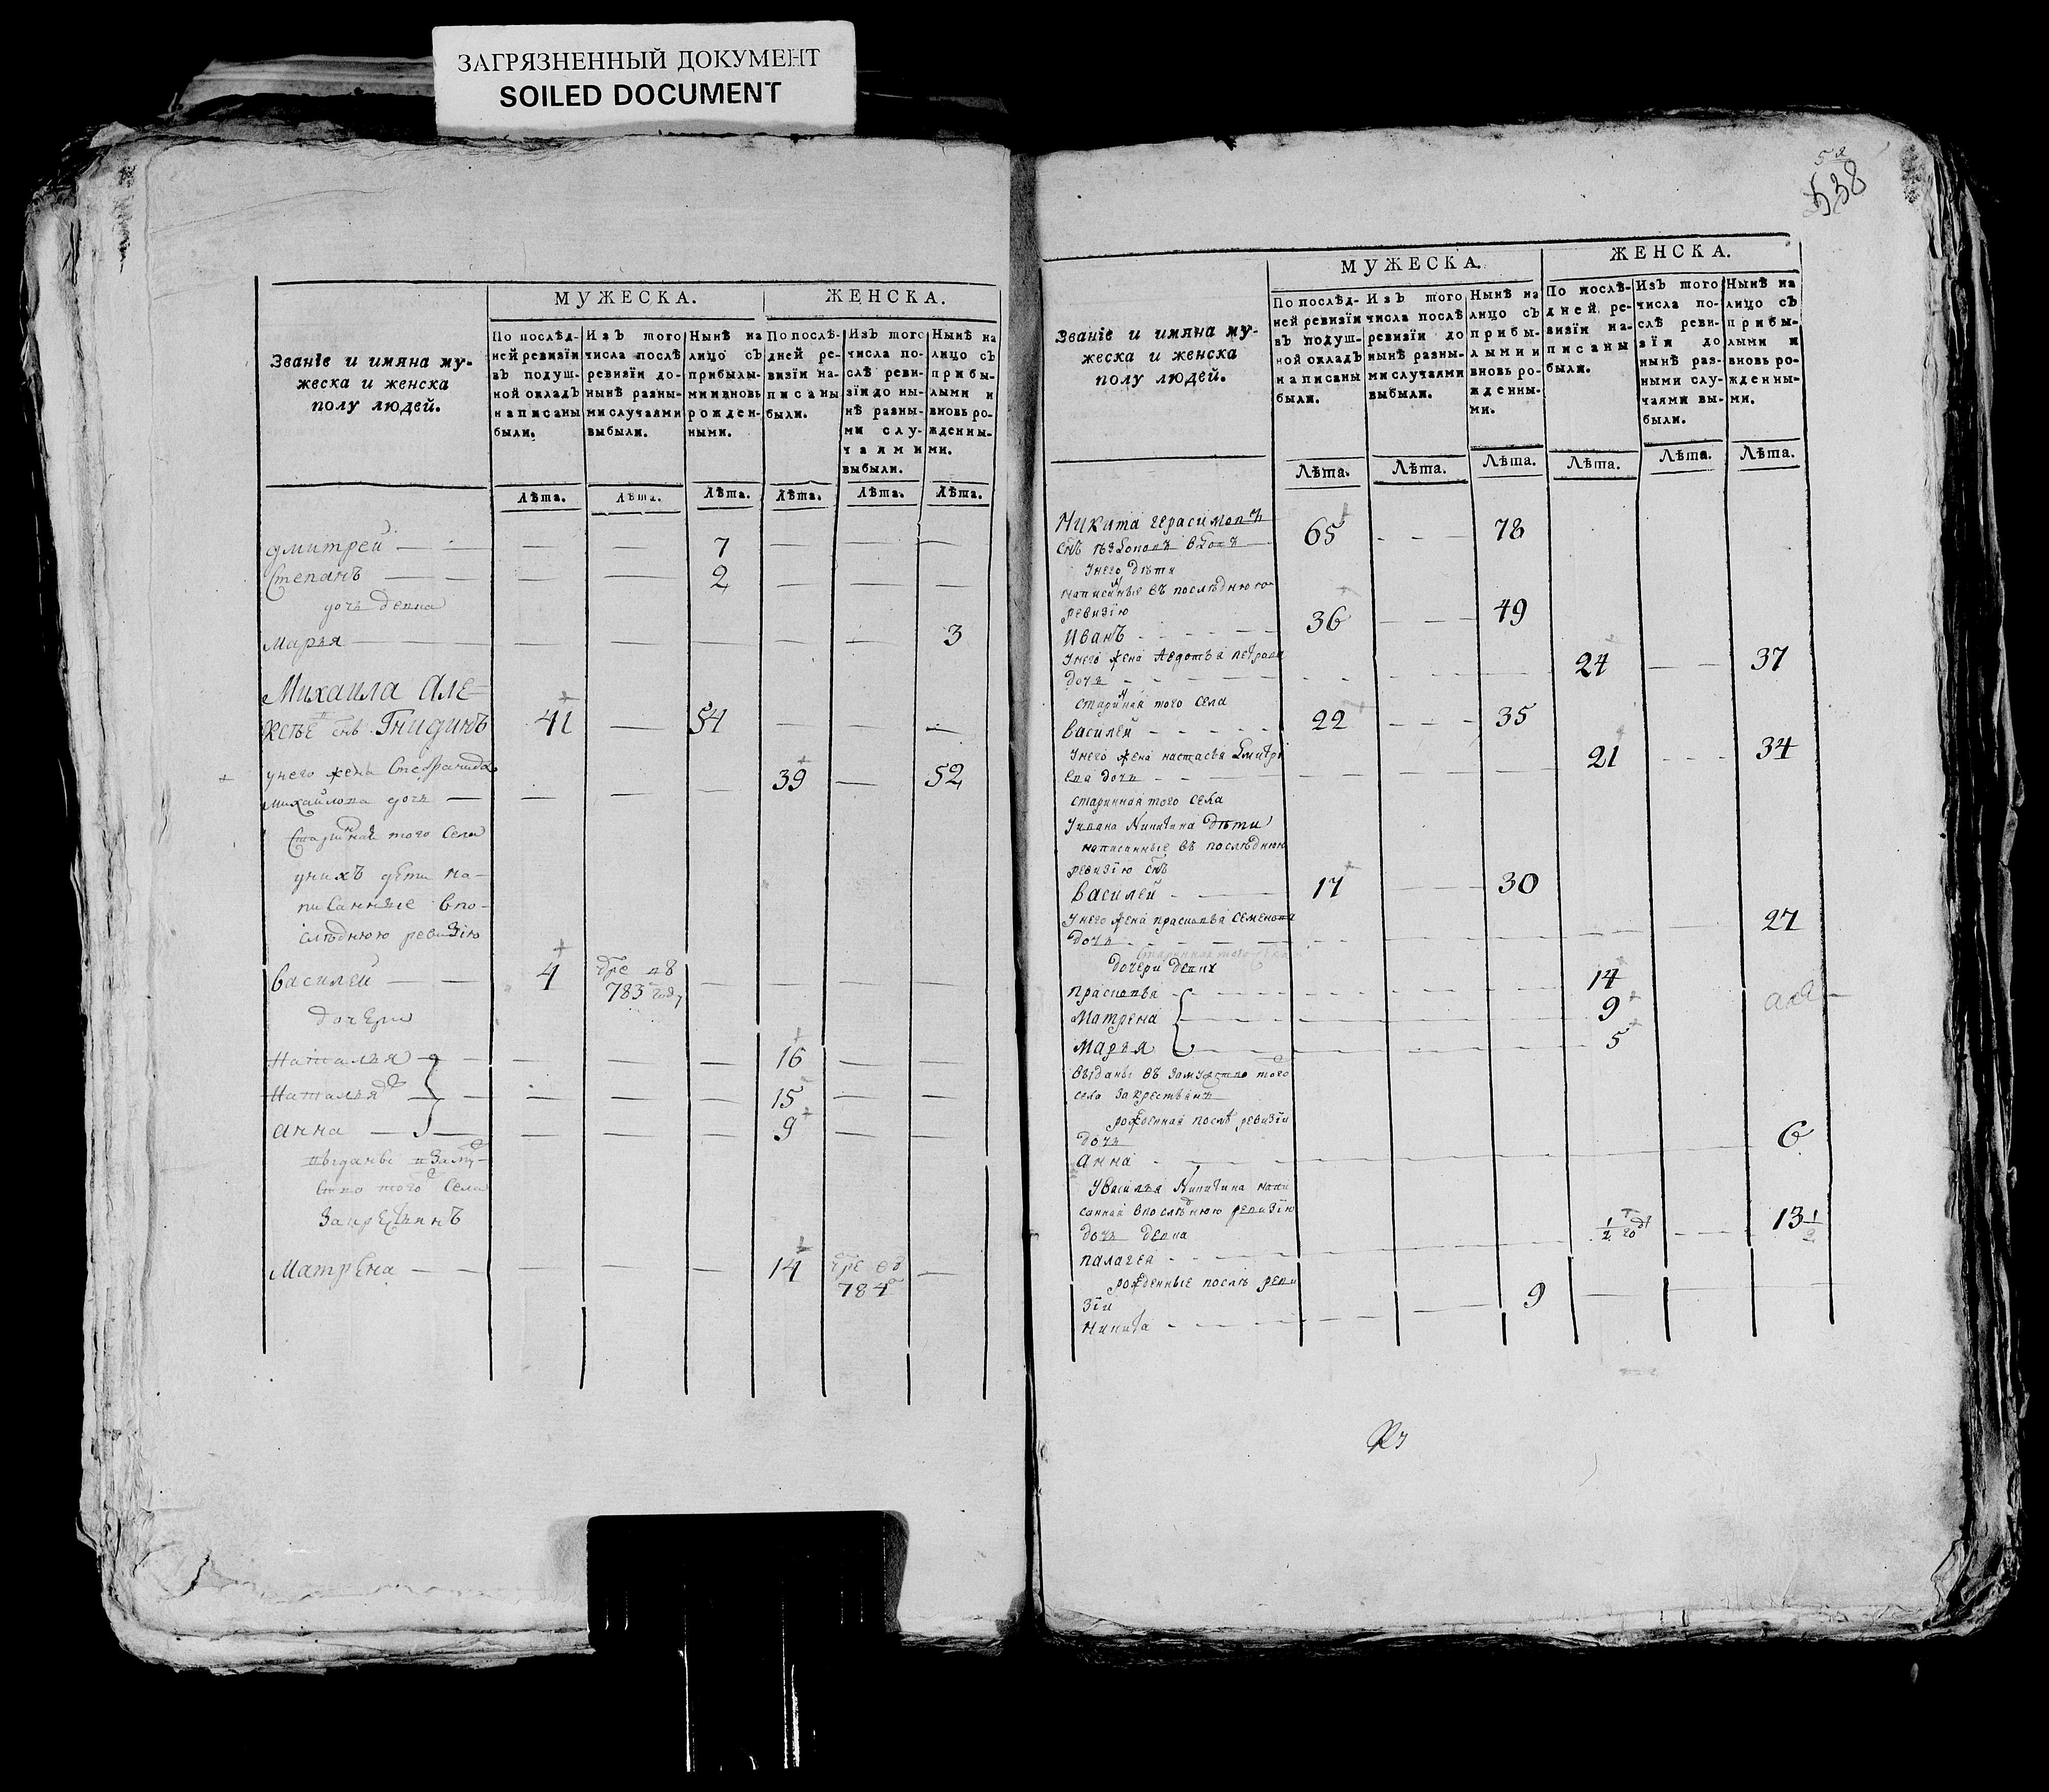 ЗАГРЯЗНЕННЫЙ ДОКУМЕНТ
SOILED DOCUMENT
Званіе и имяна му-
жеска и женска
полу людей.
МУЖЕСКА.
ЖЕНСКА.
По послѣд-
ней ревизіи
въ подуш-
ной окладъ
написаны
были.
Изъ того
числа послѣ
ревизіи до-
нынѣ разны-
ми случаями
выбыли.
Нынѣ на
лицо съ
прибылы-
ми и вновь
рожден-
ными.
По послѣ-
дней ре-
визіи на-
писаны
были.
Изъ того
числа по-
слѣ реви-
зіи до ны-
нѣ разны-
ми слу-
чаями
выбыли.
Нынѣ на
лицо съ
прибы-
лыми и
вновь ро-
жденны-
ми.
Лѣта. Лѣта. Лѣта. Лѣта. Лѣта. Лѣта.
дмитрей 7
Степанъ 2
дочь
Марья 3
Михаила Але-
ксѣе снъ Гнидинъ 41 54
у него жена Степанида 39 52
михайлова дочь
Стариннаѧ того села
у нихъ дети на-
писанные в по-
слѣднюю ревизію
Василей 4 783 году
дочери
Наталья 16
Наталья 15
анна 9
того села
Матрена 14 784
538
Званіе и имяна му-
жеска и женска
полу людей.
МУЖЕСКА.
ЖЕНСКА.
По послѣд-
ней ревизіи
въ подуш-
ной окладъ
написаны
были.
Изъ того
числа послѣ
ревизіи до
нынѣ разны-
ми случаями
выбыли.
Нынѣ на
лицо съ
прибы-
лыми и
вновь ро-
жденны-
ми.
По послѣ-
дней ре-
визіи на-
писаны
были.
Изъ того
числа по-
слѣ реви-
зіи до
нынѣ раз-
ными слу-
чаями вы-
были.
Нынѣ на
лицо съ
прибы-
лыми и
вновь ро-
жденны-
ми.
Лѣта. Лѣта. Лѣта. Лѣта. Лѣта. Лѣта.
Никита герасимовъ 65 78
снъ
У него дѣти
написаные въ послѣднюю
ревизію
Иванъ 36 49
У него жена Авдотья петрова 24 37
дочь
старинная того села
Василей 22 35
У него жена настасья дмитрі 21 34
ева дочь
старинная того села
У ивана Никитина дѣти
написанные въ послѣднюю
ревизію снъ
Василей 17 30
У него жена прасковья семенова 27
дочь
старинная того села
дочери девки
Прасковья 14
Матрена 9
Марья 5
выданы въ замужство того
села за крестьянъ
рожденная послѣ ревизіи
дочь
Анна 6
У василья Никитина напи
санная в послѣднюю ревизію
дочь девка 1/2 год 13 1/2
палагея
рожденные послѣ реви
зіи 9
никита